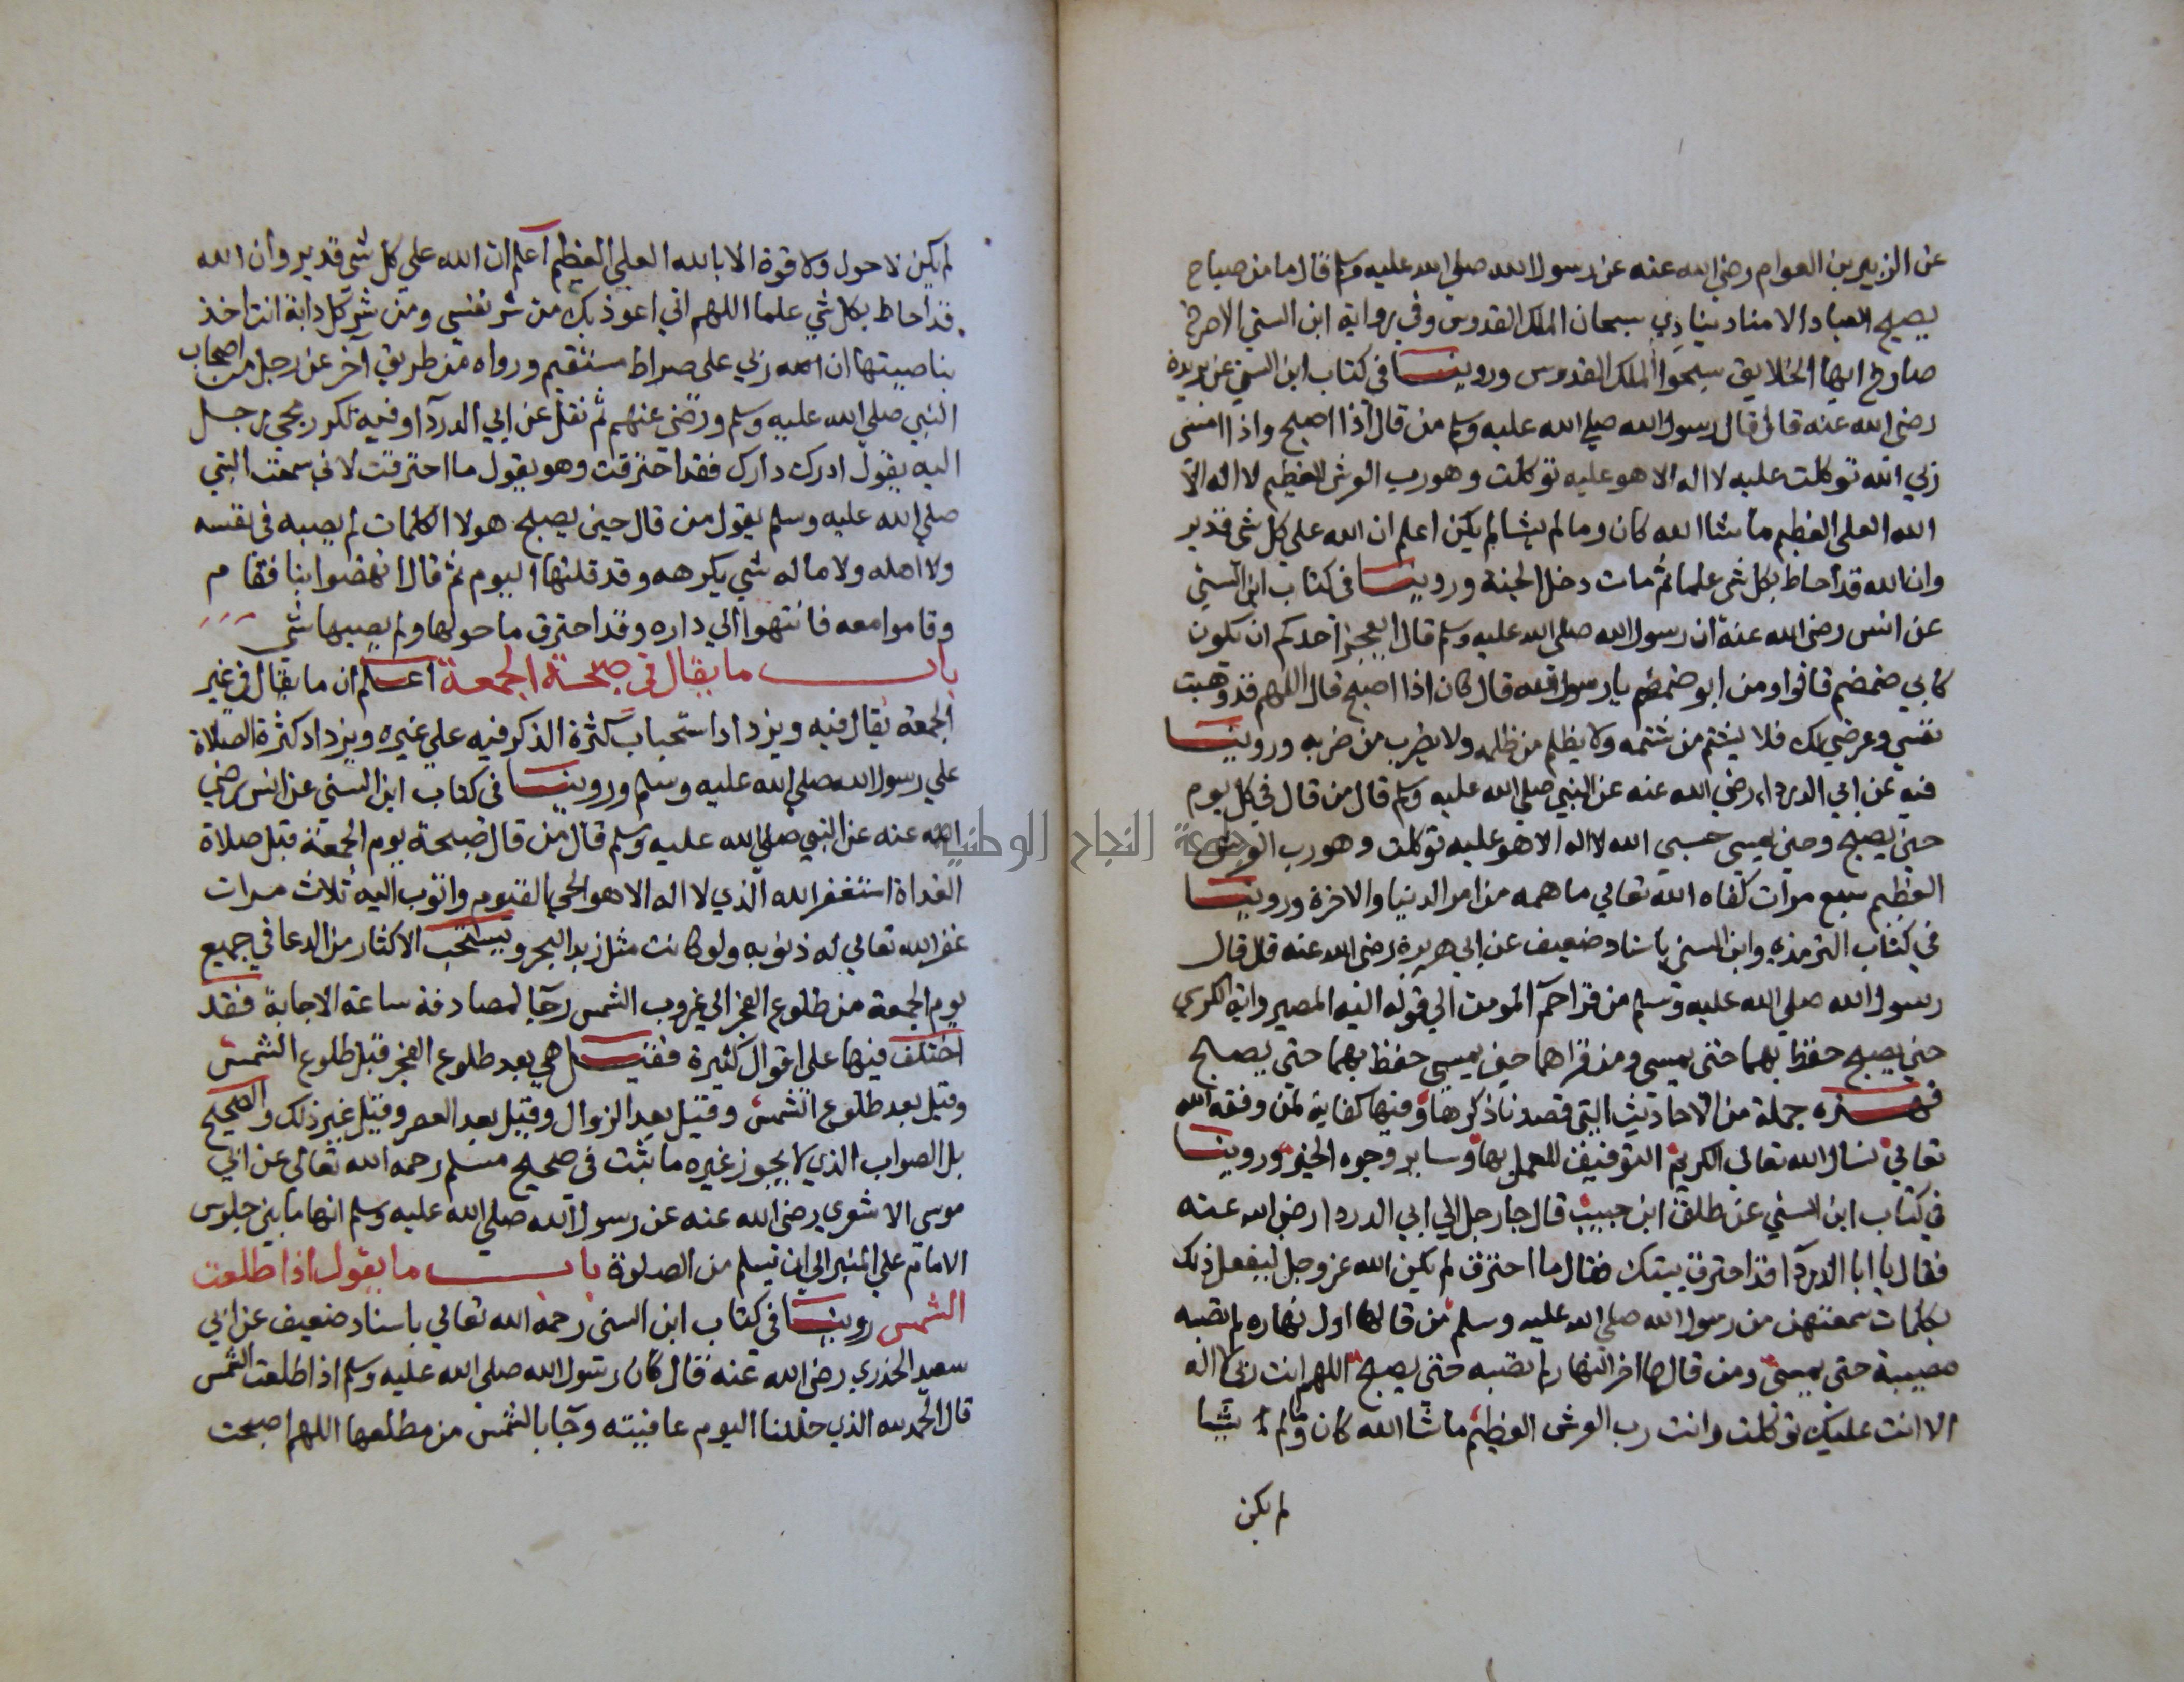 عن الزبير بن العوام رضي الله عنه عن رسول الله صلي الله عليه وسلم قال ما من صباح
يصبح العباد الا مناد ينادي سبحان الملك القدوس وفي رواية ابن السني الا صرخ
صارخ ايها الخلايق سبحوا الملك القدوس وروينا في كتاب ابن السني عن بريدة
رضي الله عنه قال قال رسول الله صلي الله عليه وسلم من قال اذا اصبح واذا امسى
ربي الله توكلت عليه لا اله الا هو عليه توكلت وهو رب العرش العظيم لا اله الا
الله العلي العظيم ما شا الله كان وما لم يشا لم يكن اعلم ان الله علي كل شي قدير
وان الله قد احاط بكل شي علما ثم مات دخل الجنة وروينا في كتاب ابن السني
عن انس رضي الله عنه ان رسول الله صلي الله عليه وسلم قال ايعجز احدكم ان يكون
كابي ضمضم قالوا ومن ابو ضمضم يا رسول الله قال كان اذا اصبح قال اللهم قد وهبت
نفسي وعرضي لك فلا يشتم من شتمه ولا يظلم من ظلمه ولا يضرب من ضربه وروينا
فيه عن ابي الدرداء رضي الله عنه عن النبي صلي الله عليه وسلم قال من قال في كل يوم
حين يصبح وحين يمسي حسبي الله لا اله الا هو عليه توكلت وهو رب العرش
العظيم سبع مرات كفاه الله تعالي ما همه من امر الدنيا والاخرة وروينا
في كتاب الترمذي وابن السني باسناد ضعيف عن ابي هريرة رضي الله عنه قال قال
رسول الله صلي الله عليه وسلم من قرا حم المومن الي قوله اليه المصير واية الكرسي
حين يصبح حفظ بهما حتى يمسي ومن قراهما حين يمسي حفظ بهما حتى يصبح
فهذه جملة من الاحاديث التي قصدنا ذكرها وفيها كفاية لمن وفقه الله
تعالي نسال الله تعالي الكريم التوفيق للعمل بها وساير وجوه الخير وروينا
في كتاب ابن السني عن طلق ابن حبيب قال جا رجل الي ابي الدردا رضي الله عنه
فقال يا ابا الدردا قد احترق بيتك فقال ما احترق لم يكن الله عز وجل ليفعل ذلك
بكلمات سمعتهن من رسول الله صلي الله عليه وسلم من قالها اول نهاره لم تصبه
مصيبة حتى يمسي ومن قالها اخر النهار لم تصبه حتى يصبح اللهم انت ربي لا اله
الا انت عليك توكلت وانت رب العرش العظيم ما شا الله كان وما لم يشا
لم يكن
لم يكن لا حول ولا قوة الا بالله العلي العظيم اعلم ان الله علي كل شي قدير وان الله
قد احاط بكل شي علما اللهم اني اعوذ بك من شر نفسي ومن شر كل دابة انت اخذ
بناصيتها ان ربي على صراط مستقيم ورواه من طريق آخر عن رجل من اصحاب
النبي صلي الله عليه وسلم ورضي عنهم ثم نقل عن ابي الدردا وفيه تكرر مجي رجل
اليه يقول ادرك دارك فقد احترقت وهو يقول ما احترقت لاني سمعت النبي
صلي الله عليه وسلم يقول من قال حين يصبح هولا الكلمات لم يصبه في نفسه
ولا اهله ولا ماله شي يكرهه وقد قلتها اليوم ثم قال انهضوا بنا فقام
وقاموا معه فانتهوا الي داره وقد احترق ما حولها ولم يصيبها شي
باب ما يقال في صبحة الجمعة اعلم ان ما يقال في غير
الجمعة يقال فيه ويزداد استحباب كثرة الذكر فيه علي غيره ويزداد كثرة الصلاة
علي رسول الله صلي الله عليه وسلم وروينا في كتاب ابن السني عن انس رضي
الله عنه عن النبي صلي الله عليه وسلم قال من قال صبحة يوم الجمعة قبل صلاة
الغداة استغفر الله الذي لا اله الا هو الحي القيوم واتوب اليه ثلاث مرات
غفر الله تعالي له ذنوبه ولو كانت مثل زبد البحر ويستحب الاكثار من الدعا في جميع
يوم الجمعة من طلوع الفجر الي غروب الشمس رجا لمصادفة ساعة الاجابة فقد
اختلف فيها على اقوال كثيرة فقيل هي بعد طلوع الفجر قبل طلوع الشمس
وقيل بعد طلوع الشمس وقيل بعد الزوال وقيل بعد العصر وقيل غير ذلك والصحيح
بل الصواب الذي لا يجوز غيره ما ثبت في صحيح مسلم رحمه الله تعالي عن ابي
موسي الاشعري رضي الله عنه عن رسول الله صلي الله عليه وسلم انها ما بين جلوس
الامام علي المنبر الي ان يسلم من الصلوة باب ما يقول اذا طلعت
الشمس روينا في كتاب ابن السني رحمه الله تعالي باسناد ضعيف عن ابي
سعيد الخدري رضي الله عنه قال كان رسول الله صلي الله عليه وسلم اذا طلعت الشمس
قال الحمد لله الذي جللنا اليوم عافيته وجا بالشمس من مطلعها اللهم اصبحت
جامعة النجاح الوطنية